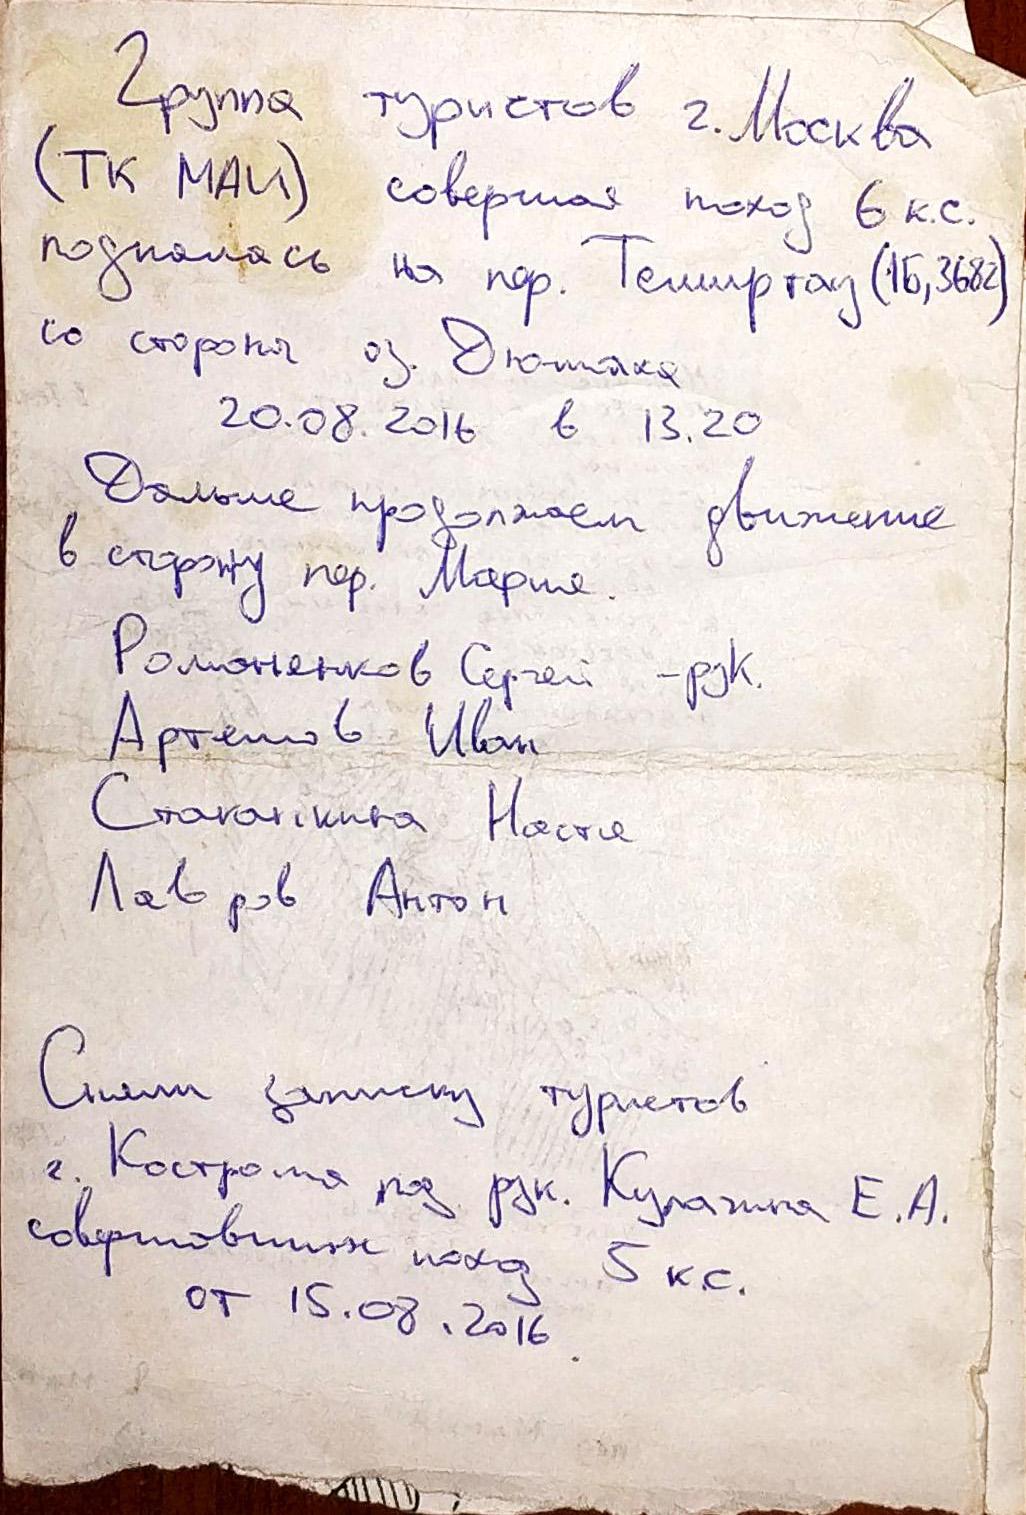 Группа туристов г. Москва
(ТК МАИ) совершая поход 6 к.с.
поднялась на пер. Темиртау (1Б, 3682)
со стороны оз. Дюшака
20.08.2016 в 13.20
Дальше продолжаем движение
в сторону пер. Мария.
Романенков Сергей - рук.
Артемов Иван
Стаканкина Настя
Лавров Антон
Сняли записку туристов
г. Кострома под рук. Кулагина Е.А.
совершавших поход 5 к.с.
от 15.08.2016.